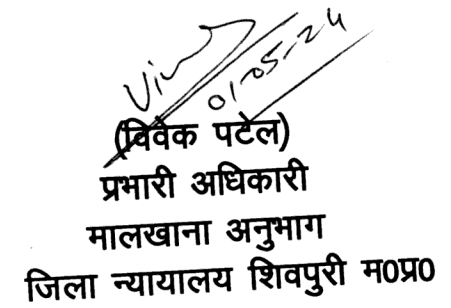 01-05-24
(विवेक पटेल)
प्रभारी अधिकारी
मालखाना अनुभाग
जिला न्यायालय शिवपुरी म0प्र0